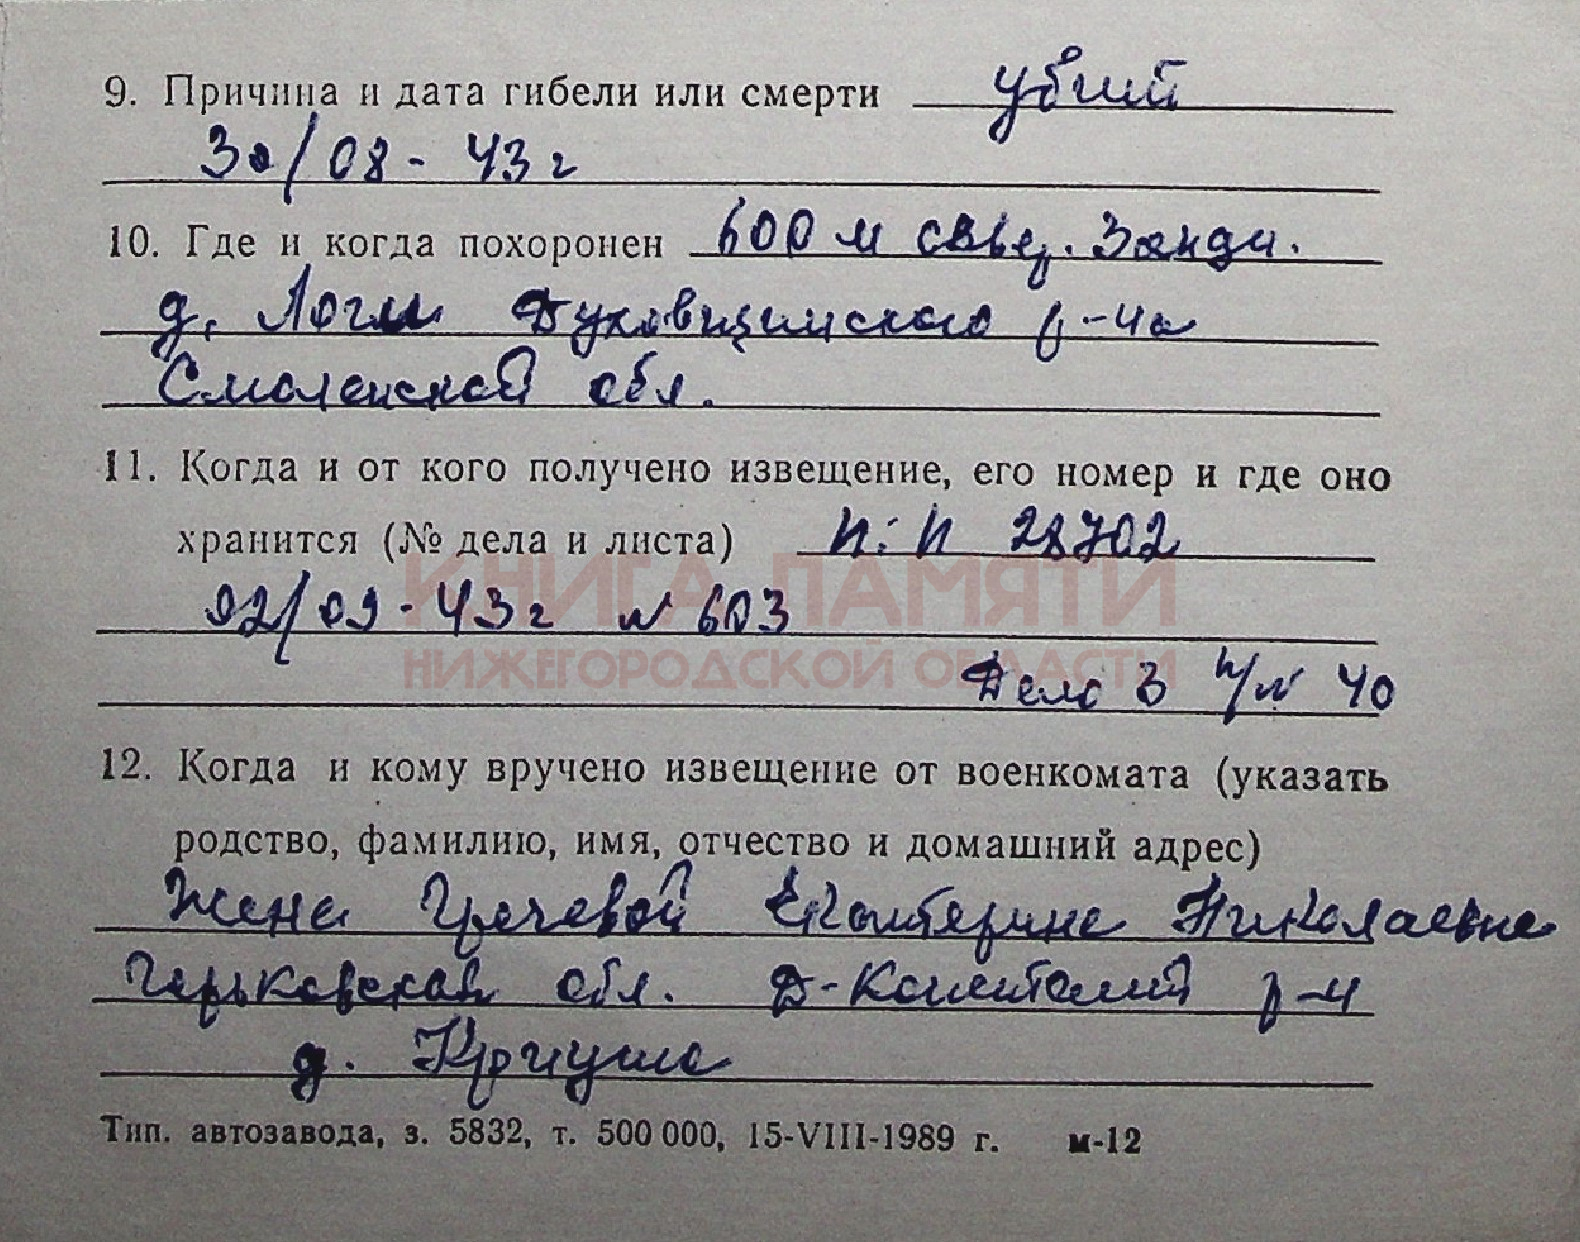 9. Причина и дата гибели или смерти убит
30/08 - 43 г
10. Где и когда похоронен 600 м
д. Логи Духовщинского р-на
Смоленской обл.
11. Когда и от кого получено извещение, его номер и где оно
хранится (№ дела и листа) п.п 28702
02/09 - 43 г № 603
КНИГА ПАМЯТИ
НИЖЕГОРОДСКОЙ ОБЛАСТИ
Дело 3 п/№ 40
12. Когда и кому вручено извещение от военкомата (указать
родство, фамилию, имя, отчество и домашний адрес)
Жене Грачевой Екатерине Николаевне
Горьковская обл. Д-Константин р-н
д. Криуша
Тип. автозавода, з. 5832, т. 500 000, 15-VIII-1989 г. м-12